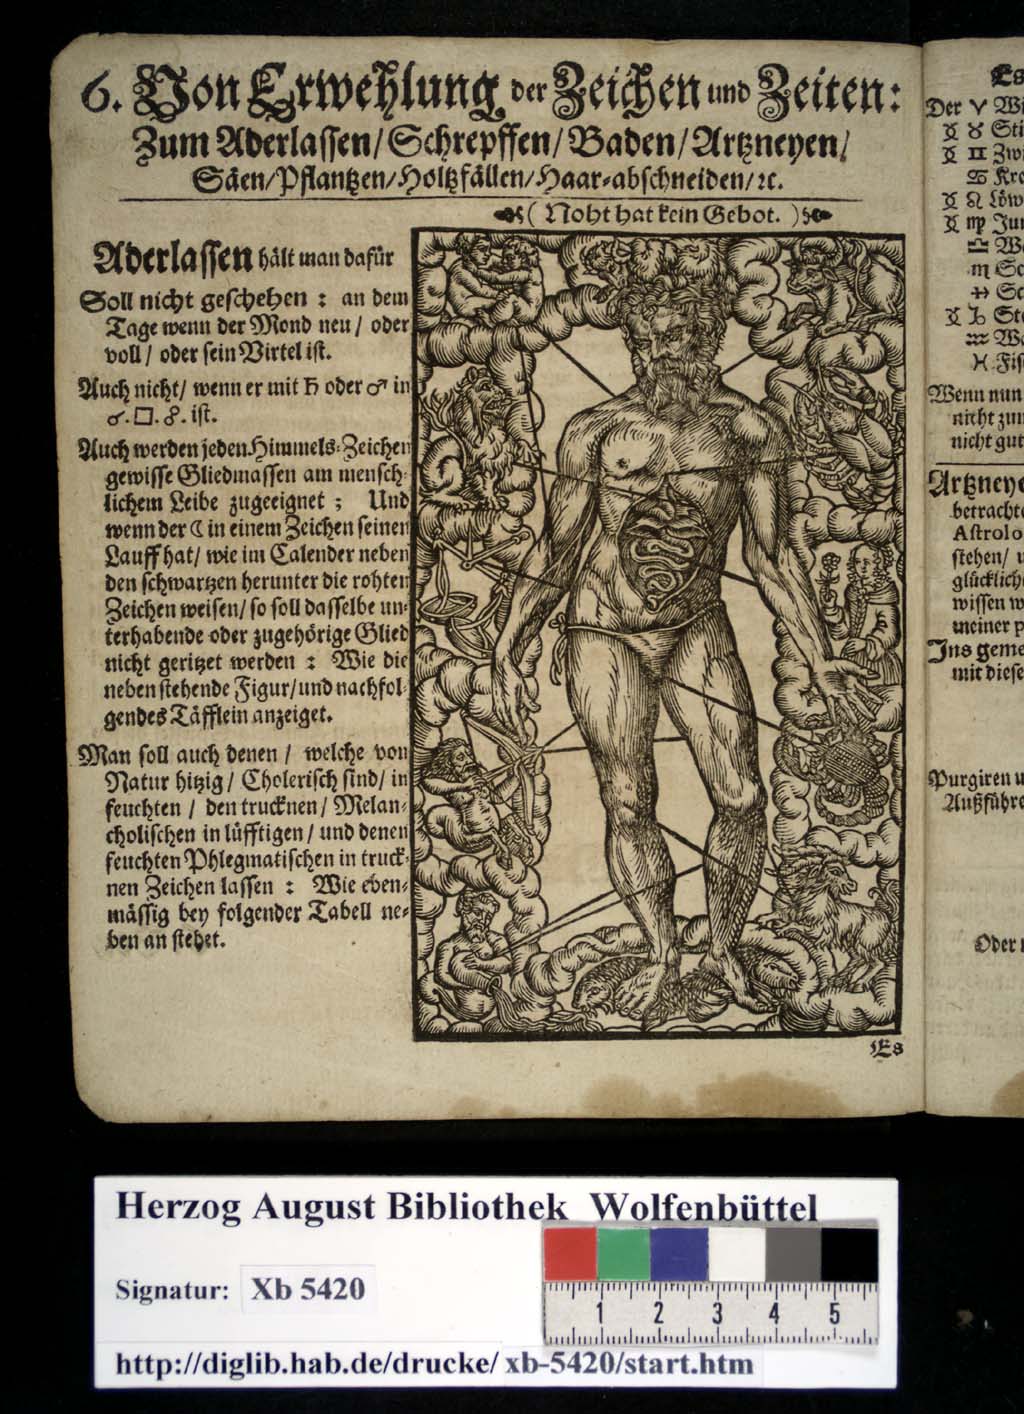 6. Von Erwehlung der Zeichen und Zeiten:
Zum Aderlassen/Schrepffen/Baden/Artzneyen/
Säen/Pflantzen/Holtzfällen/Haar-abschneiden/ꝛc.
( Noht hat kein Gebot. )
Aderlassen hält man dafür
Soll nicht geschehen : an dem
Tage wenn der Mond neu / oder
voll / oder sein Virtel ist.
Auch nicht/ wenn er mit ♄ oder ♂ in
☌. □. ☍. ist.
Auch werden jeden Himmels-Zeichen
gewisse Gliedmassen am mensch-
lichem Leibe zugeeignet ; Und
wenn der ☾ in einem Zeichen seinen
Lauff hat/ wie im Calender neben
den schwartzen herunter die rohten
Zeichen weisen/ so soll dasselbe un-
terhabende oder zugehörige Glied
nicht geritzet werden : Wie die
neben stehende Figur/ und nachfol-
gendes Täfflein anzeiget.
Man soll auch denen / welche von
Natur hitzig / Cholerisch sind/ in
feuchten / den trucknen/ Melan-
cholischen in lüfftigen / und denen
feuchten Phlegmatischen in truck-
nen Zeichen lassen : Wie eben-
mässig bey folgender Tabell ne-
ben an stehet.
Es
Es
Der ♈ Wi
♉ Sti
♊ Zwi
♋ Kre
♌ Löw
♍ Jun
♎ W
♏ Sc
♐ Sc
♑ Ste
♒ W
♓ Fis
Wenn nun
nicht zur
nicht gut
Artzneye
betracht
Astrolo
stehen/
glücklich
wissen w
meiner p
Ins geme
mit diese
Purgiren u
Außführ
Oder
Herzog August Bibliothek Wolfenbüttel
Signatur: Xb 5420
1 2 3 4 5
http://diglib.hab.de/drucke/xb-5420/start.htm